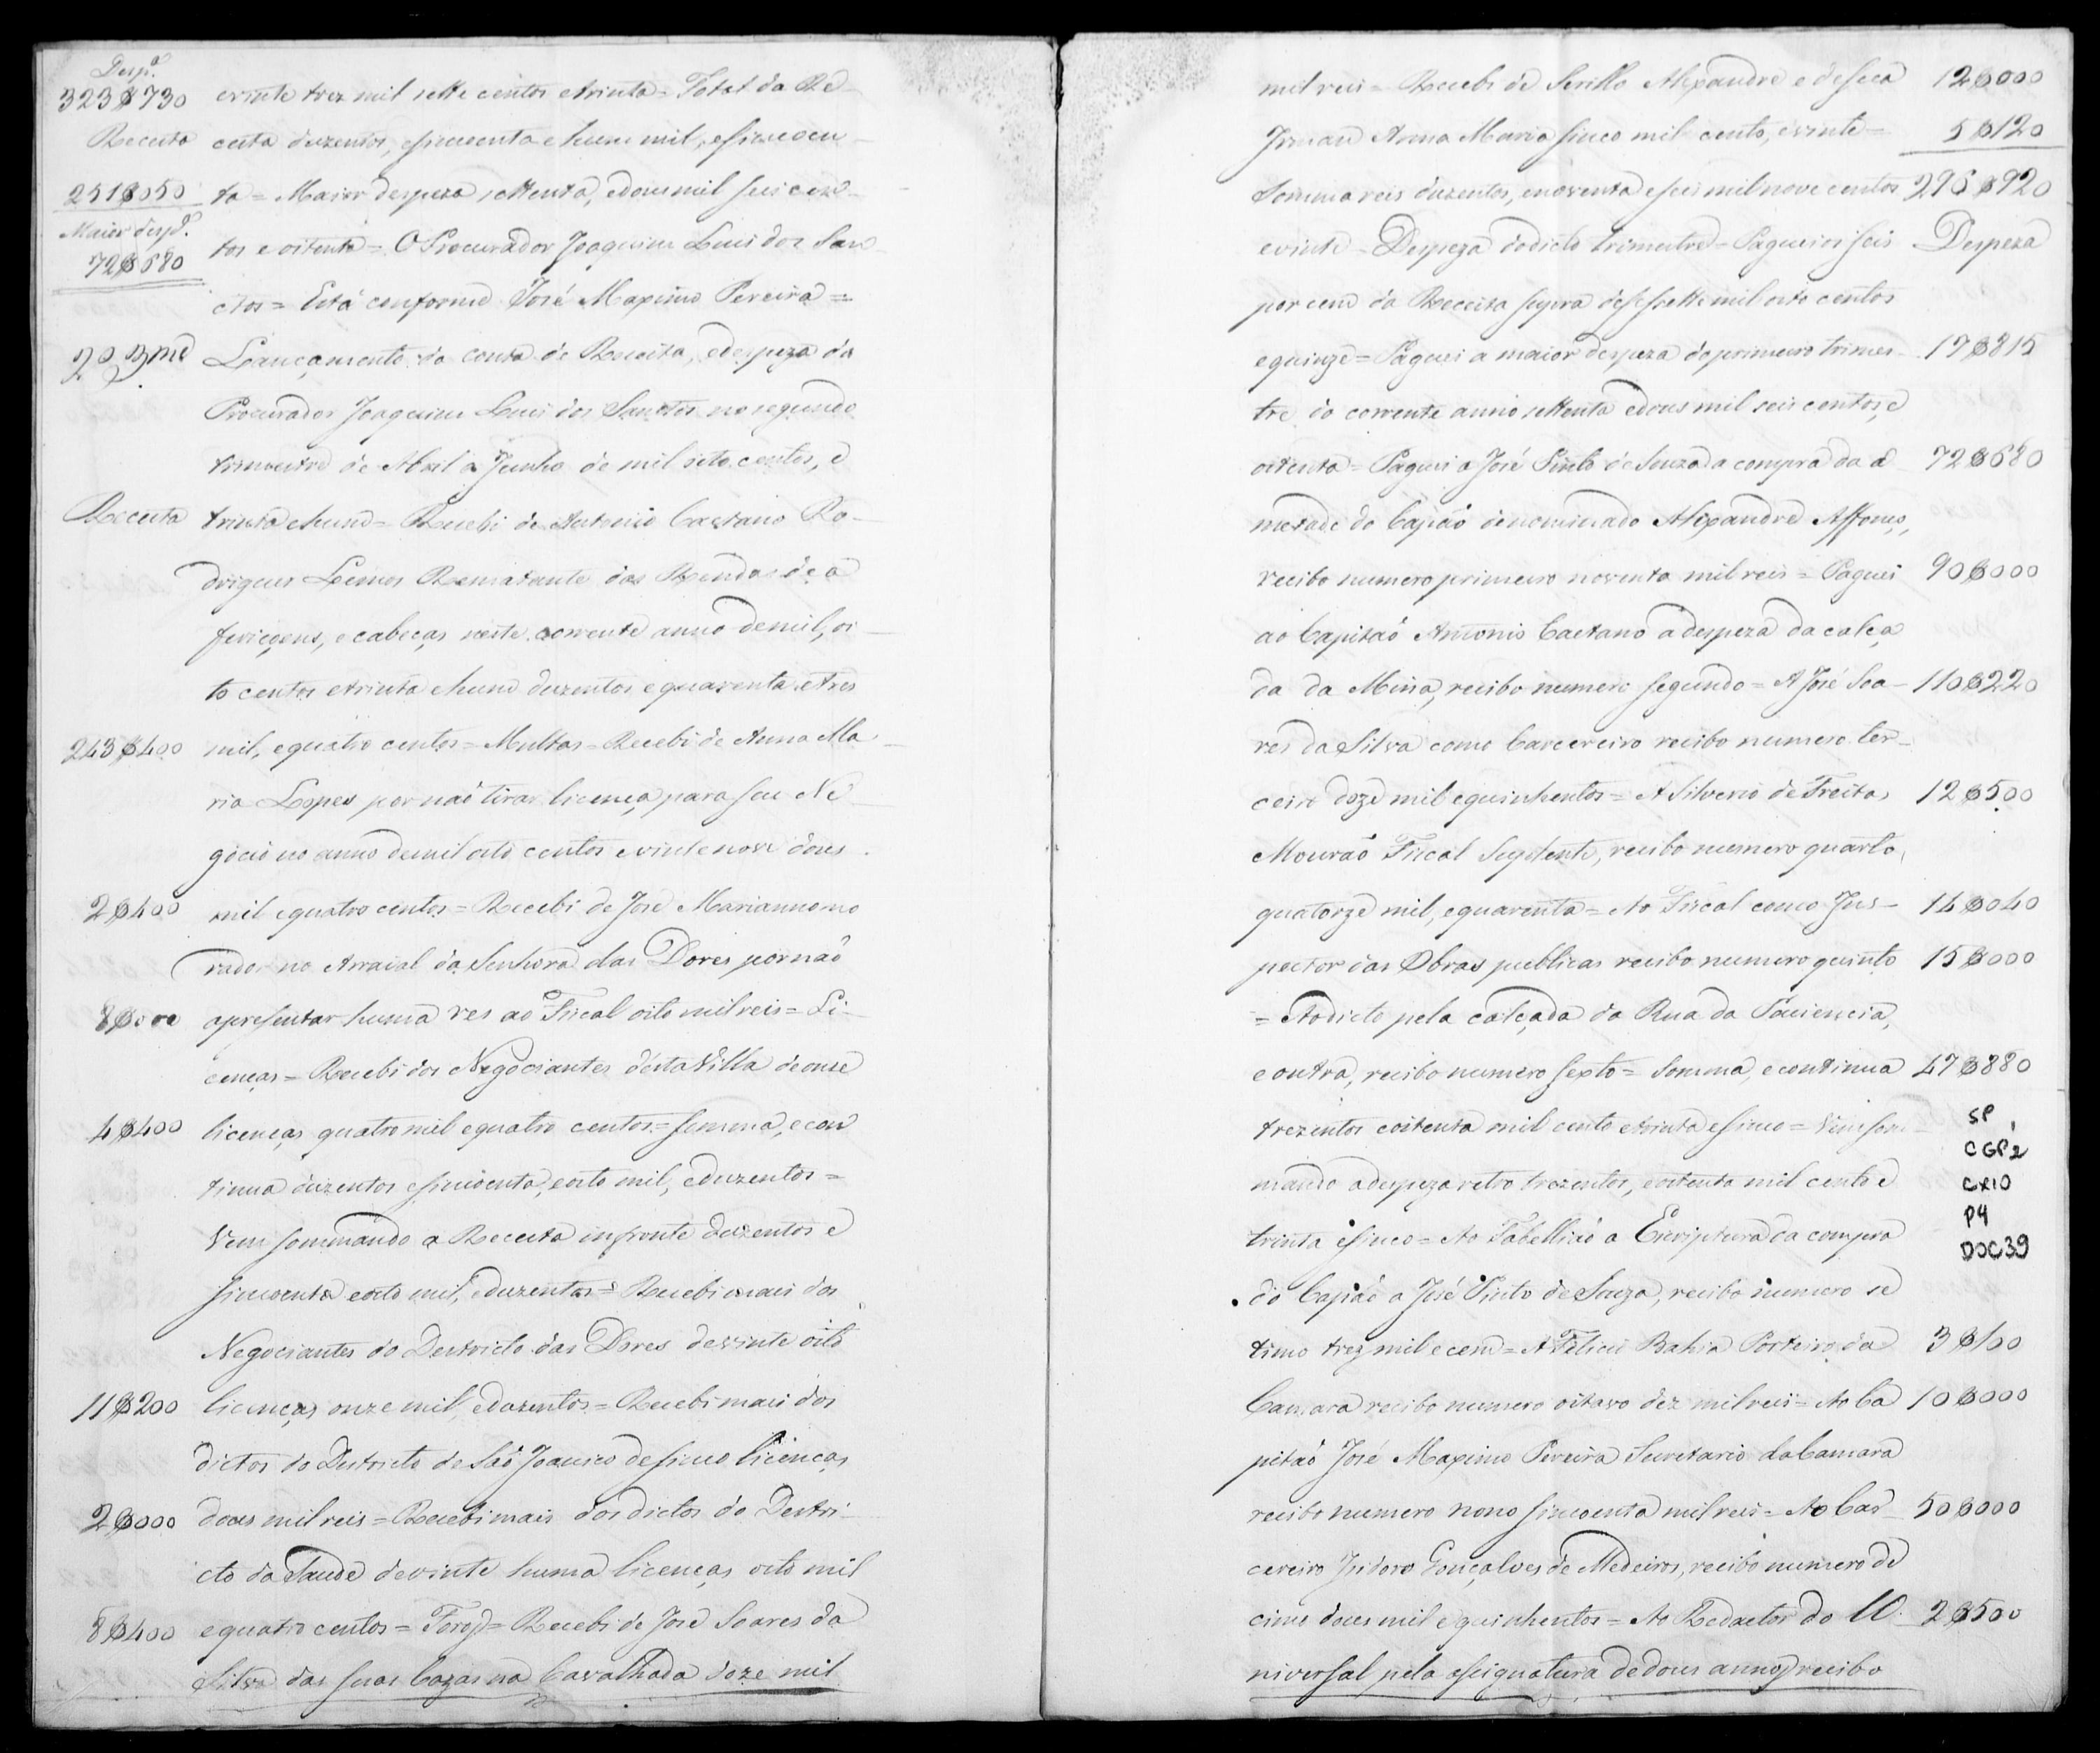 Desp.ª
323$730 evinte trez mil sette centos etrinta = Total da Re-
Receita ceita duzentos, esincoenta ehum mil, esincoen-
251$050 ta = Maior despeza settenta, edous mil seis cen-
Maior desp.ª
72$680 tos e oitenta = O Procurador Joaquim Luis dos San-
ctos = Está conforme José Maximo Pereira =
2º 3me Lançamento da conta de Receita, edespeza do
Procurador Joaquim Luis dos Sanctos no segundo
trimestre de Abril a Junho de mil oito centos, e
Receita trinta ehum = Recebi de Antonio Caetano Ro-
drigues Lemos Rematante das Rendas de a
feriçoens, e cabeças neste corrente anno demil, oi-
to centos etrinta ehum duzentos e quarenta etres
243$400 mil, equatro centos = Multas = Recebi de Anna Ma-
ria Lopes por naõ tirar licença para seu Ne
gocio no anno demil oito centos evinte nove dous
2$400 mil equatro centos = Recebi de José Marianno mo
rador no Arraial da Senhora das Dores por naõ
8$000 apresentar huma res ao Fiscal oito mil reis = Li-
cenças = Recebi dos Negociantes desta Villa deonze
4$400 licenças quatro mil equatro centos = Somma, econ
tinua duzentos esincoenta, eoito mil, eduzentos =
Vem sommando a Receita infronte duzentos e
sincoenta eoito mil, eduzentos = Recebi mais dos
Negociantes do Destricto das Dores devinte oito
11$200 licenças onze mil, eduzentos = Recebi mais dos
dictos do Destricto de Saõ Joanico desinco licenças
2$000 dous mil reis = Recebi mais dos dictos do Destri-
cto da Saude devinte huma licenças oito mil
8$400 equatro centos = Foros = Recebi de José Soares da
Silva das suas Cazas na Cavalhada doze mil
mil reis = Recebi de Sirillo Alexandre e desua 12$000
Irman Anna Maria sinco mil cento, evinte = 5$120
Somma reis duzentos, enoventa eseis mil nove centos 296$920
evinte = Despeza dodicto trimestre = Paguei os seis Despeza
por cem da Receita supra desessette mil oito centos
equinze = Paguei a maior despeza doprimeiro trimes- 17$815
tre do corrente anno settenta edous mil seis centos, e
oitenta = Paguei a José Pinto de Souza a compra da a 72$680
metade do Capaõ denominado Alexandre Affonso,
recibo numero primeiro noventa mil reis = Paguei 90$000
ao Capitaõ Antonio Caetano a despeza da calça
da da Mina, recibo numero segundo = A José Soa- 110$220
res da Silva como Carcereiro recibo numero ter-
ceiro doze mil equinhentos = A Silverio de Freitas 12$500
Mouraõ Fiscal Suplente, recibo numero quarto,
quatorze mil, equarenta = Ao Fiscal como Ins- 14$040
pector das Obras publicas recibo numero quinto 15$000
= Aodicto pela calçada da Rua da Paciencia,
e outra, recibo numero sexto = Somma, econtinua 47$880
trezentos eoitenta mil cento etrinta esinco = Vem som-
mando adespeza retro trezentos, eoitenta mil cento e
trinta esinco = Ao Tabelliaõ a Escriptura da compra
do Capaõ a José Pinto de Souza, recibo numero se
timo trez mil e cem = A Felicio Bahia Porteiro da 3$100
Camara recibo numero oitavo dez mil reis = Ao Ca 10$000
pitaõ José Maximo Pereira Secretario da Camara
recibo numero nono sincoenta mil reis = Ao Car- 50$000
cereiro Isidoro Gonçalves de Medeiros, recibo numero de
cimo dous mil equinhentos = Ao Redactor do U- 2$500
niversal pela assignatura dedous annos recibo
SP
CGP2
CX10
P4
DOC39